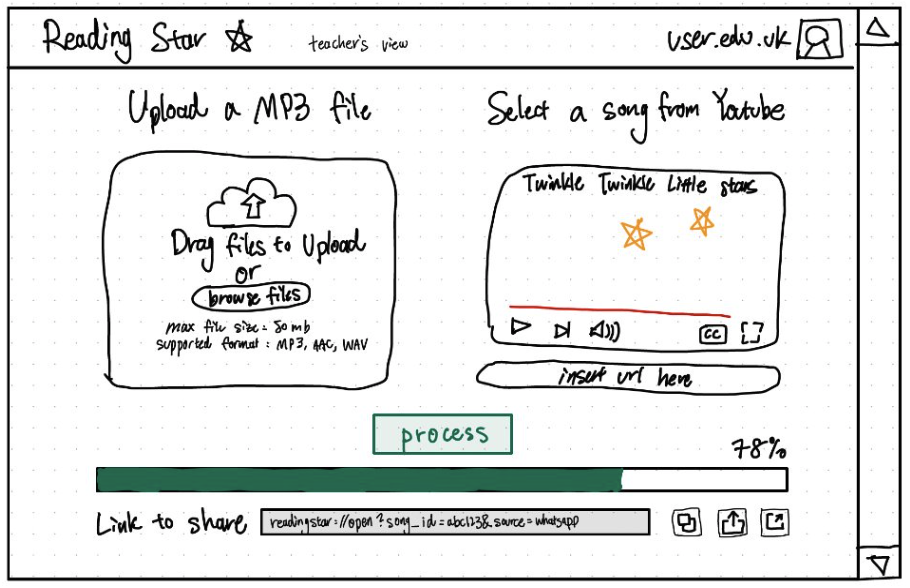 Reading Star
teacher's view
user.edu.uk
Upload a MP3 file
Select a song from Youtube
Drag files to Upload
or
browse files
max file size = 50 mb
supported format : MP3, AAC, WAV
Twinkle Twinkle Little stars
CC
insert url here
process
78%
Link to share
readingstar://open?song_id=abc123&source=whatsapp